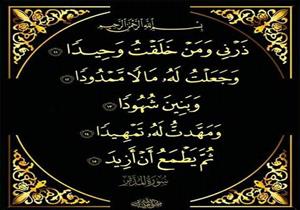 بسم الله الرحمن الرحيم
ذَرْنِي وَمَنْ خَلَقْتُ وَحِيدًا ١١
وَجَعَلْتُ لَهُۥ مَالًا مَّمْدُودًا ١٢
وَبَنِينَ شُهُودًا ١٣
وَمَهَّدتُّ لَهُۥ تَمْهِيدًا ١٤
ثُمَّ يَطْمَعُ أَنْ أَزِيدَ ١٥
سورة المدثر